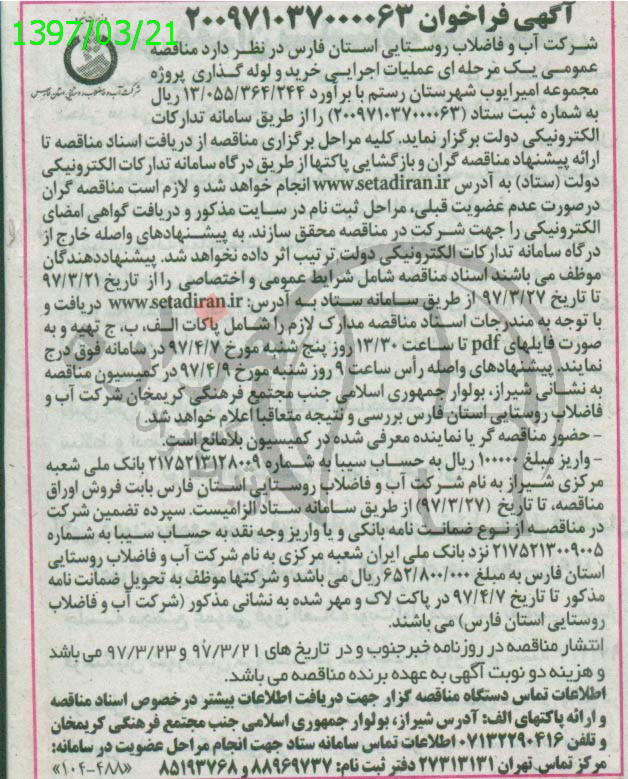 آگهی فراخوان ۲۰۰۹۷۱۰۳۷۰۰۰۰۶۳
1397/03/21
شرکت آب و فاضلاب روستایی استان فارس
شرکت آب و فاضلاب روستایی استان فارس در نظر دارد مناقصه
عمومی یک مرحله ای عملیات اجرایی خرید و لوله گذاری پروژه
مجموعه امیرایوب شهرستان رستم با برآورد ۱۳/۰۵۵/۳۶۴/۲۴۴ ریال
به شماره ثبت ستاد (۲۰۰۹۷۱۰۳۷۰۰۰۰۶۳) را از طریق سامانه تدارکات
الکترونیکی دولت برگزار نماید. کلیه مراحل برگزاری مناقصه از دریافت اسناد مناقصه تا
ارائه پیشنهاد مناقصه گران و بازگشایی پاکتها از طریق درگاه سامانه تدارکات الکترونیکی
دولت (ستاد) به آدرس www.setadiran.ir انجام خواهد شد و لازم است مناقصه گران
درصورت عدم عضویت قبلی، مراحل ثبت نام در سایت مذکور و دریافت گواهی امضای
الکترونیکی را جهت شرکت در مناقصه محقق سازند. به پیشنهادهای واصله خارج از
درگاه سامانه تدارکات الکترونیکی دولت ترتیب اثر داده نخواهد شد. پیشنهاددهندگان
موظف می باشند اسناد مناقصه شامل شرایط عمومی و اختصاصی را از تاریخ ۹۷/۳/۲۱
تا تاریخ ۹۷/۳/۲۷ از طریق سامانه ستاد به آدرس: www.setadiran.ir دریافت و
با توجه به مندرجات اسناد مناقصه مدارک لازم را شامل پاکات الف، ب، ج تهیه و به
صورت فایلهای pdf تا ساعت ۱۳/۳۰ روز پنج شنبه مورخ ۹۷/۴/۷ در سامانه فوق درج
نمایند. پیشنهادهای واصله رأس ساعت ۹ روز شنبه مورخ ۹۷/۴/۹ در کمیسیون مناقصه
به نشانی شیراز، بولوار جمهوری اسلامی جنب مجتمع فرهنگی کریمخان شرکت آب و
فاضلاب روستایی استان فارس بررسی و نتیجه متعاقبا اعلام خواهد شد.
- حضور مناقصه گر یا نماینده معرفی شده در کمیسیون بلامانع است.
- واریز مبلغ ۱۰۰۰۰۰ ریال به حساب سیبا به شماره ۲۱۷۵۲۱۳۱۲۸۰۰۹ بانک ملی شعبه
مرکزی شیراز به نام شرکت آب و فاضلاب روستایی استان فارس بابت فروش اوراق
مناقصه، تا تاریخ (۹۷/۳/۲۷) از طریق سامانه ستاد الزامیست. سپرده تضمین شرکت
در مناقصه از نوع ضمانت نامه بانکی و یا واریز وجه نقد به حساب سیبا به شماره
۲۱۷۵۲۱۳۰۰۹۰۰۵ نزد بانک ملی ایران شعبه مرکزی به نام شرکت آب و فاضلاب روستایی
استان فارس به مبلغ ۶۵۲/۸۰۰/۰۰۰ ریال می باشد و شرکتها موظف به تحویل ضمانت نامه
مذکور تا تاریخ ۹۷/۴/۷ در پاکت لاک و مهر شده به نشانی مذکور (شرکت آب و فاضلاب
روستایی استان فارس) می باشند.
انتشار مناقصه در روزنامه خبرجنوب و در تاریخ های ۹۷/۳/۲۱ و ۹۷/۳/۲۳ می باشد
و هزینه دو نوبت آگهی به عهده برنده مناقصه می باشد.
اطلاعات تماس دستگاه مناقصه گزار جهت دریافت اطلاعات بیشتر درخصوص اسناد مناقصه
و ارائه پاکتهای الف: آدرس شیراز، بولوار جمهوری اسلامی جنب مجتمع فرهنگی کریمخان
و تلفن ۰۷۱۳۲۲۹۰۴۱۶ اطلاعات تماس سامانه ستاد جهت انجام مراحل عضویت در سامانه:
مرکز تماس تهران ۲۷۳۱۳۱۳۱ دفتر ثبت نام: ۸۸۹۶۹۷۳۷ و ۸۵۱۹۳۷۶۸ «۱۰۴-۴۸۸»